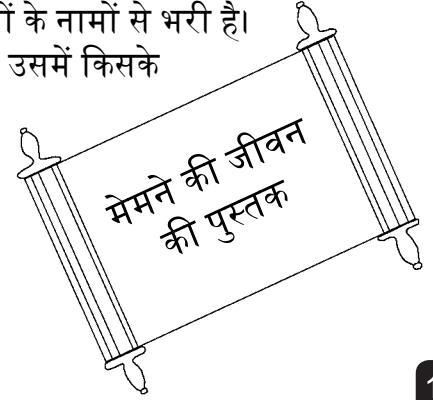 ों के नामों से भरी है।
उसमें किसके
मेमने की जीवन
की पुस्तक